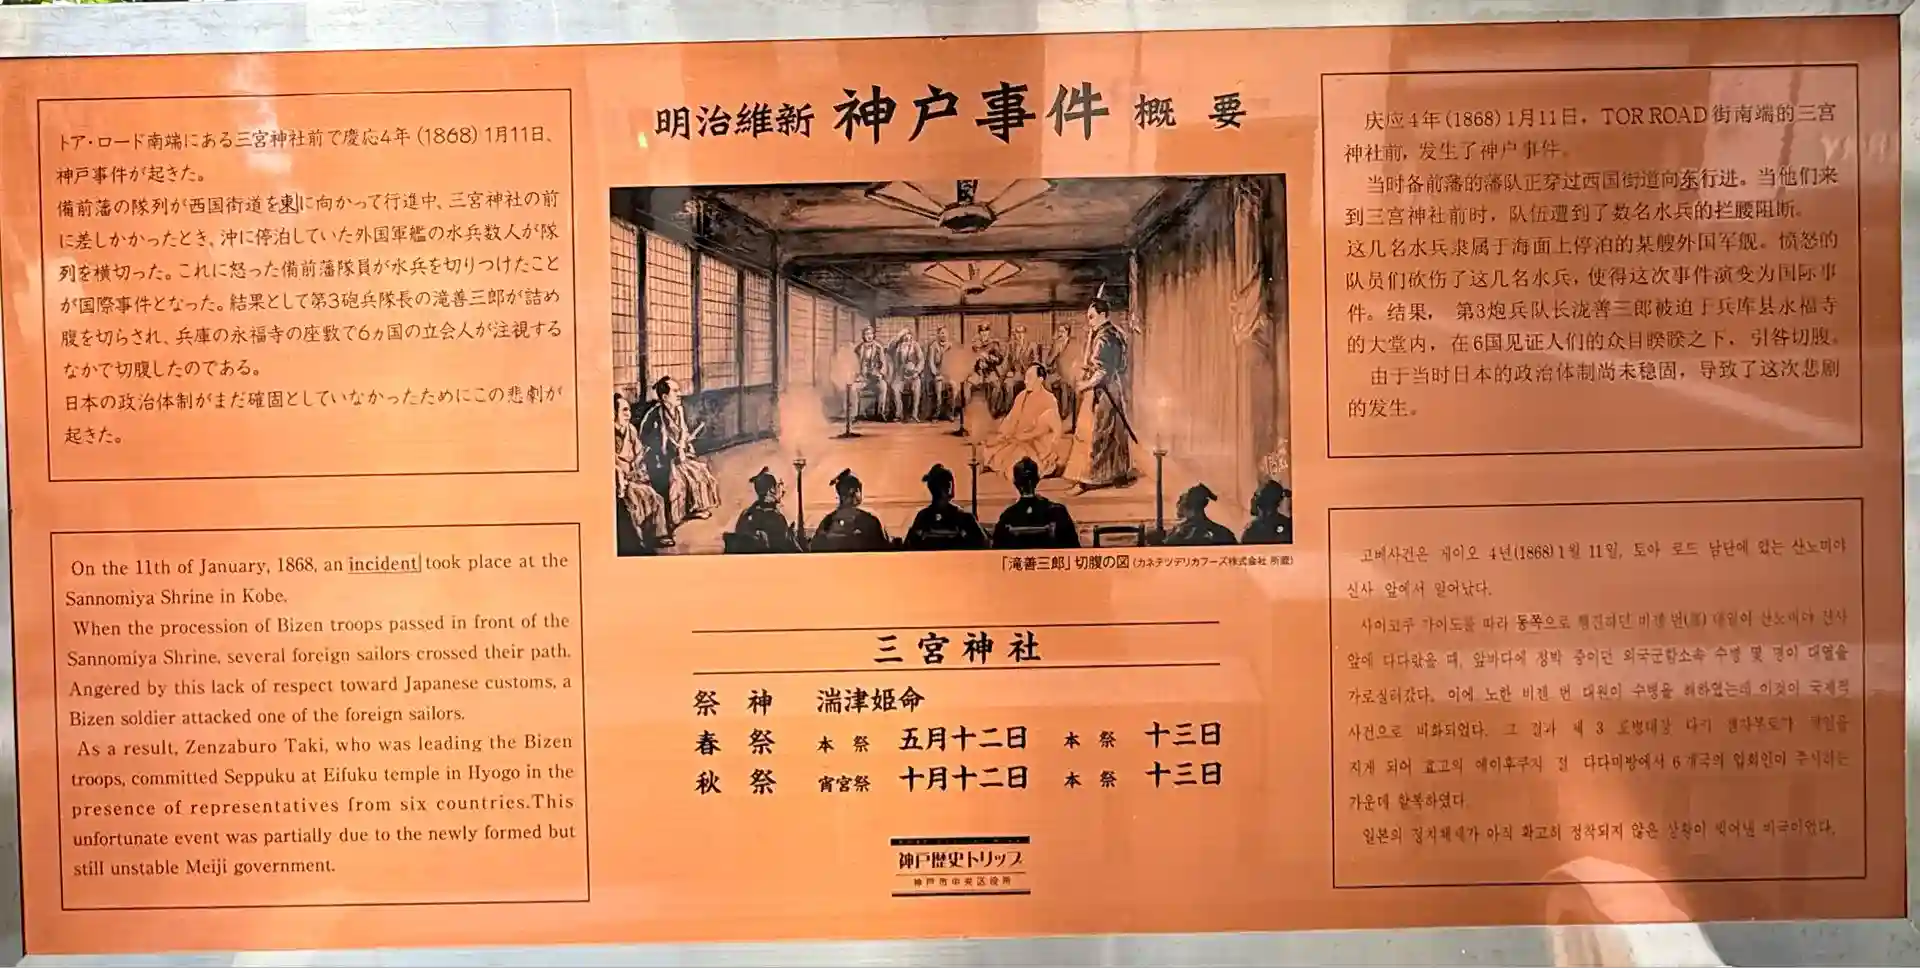 明治維新 神戸事件 概要
トア・ロード南端にある三宮神社前で慶応4年(1868)1月11日、
神戸事件が起きた。
備前藩の隊列が西国街道を東に向かって行進中、三宮神社の前
に差しかかったとき、沖に停泊していた外国軍艦の水兵数人が隊
列を横切った。これに怒った備前藩隊員が水兵を切りつけたこと
が国際事件となった。結果として第3砲兵隊長の滝善三郎が詰め
腹を切らされ、兵庫の永福寺の座敷で6ヵ国の立会人が注視する
なかで切腹したのである。
日本の政治体制がまだ確固としていなかったためにこの悲劇が
起きた。
On the 11th of January, 1868, an incident took place at the
Sannomiya Shrine in Kobe.
When the procession of Bizen troops passed in front of the
Sannomiya Shrine, several foreign sailors crossed their path.
Angered by this lack of respect toward Japanese customs, a
Bizen soldier attacked one of the foreign sailors.
As a result, Zenzaburo Taki, who was leading the Bizen
troops, committed Seppuku at Eifuku temple in Hyogo in the
presence of representatives from six countries.This
unfortunate event was partially due to the newly formed but
still unstable Meiji government.
「滝善三郎」切腹の図(カネテツデリカフーズ株式会社 所蔵)
三宮神社
祭神 湍津姫命
春祭 本祭 五月十二日 本祭 十三日
秋祭 宵宮祭 十月十二日 本祭 十三日
神戸歴史トリップ
神戸市中央区役所
庆应4年(1868)1月11日,TOR ROAD街南端的三宫
神社前,发生了神户事件。
当时备前藩的藩队正穿过西国街道向东行进。当他们来
到三宫神社前时,队伍遭到了数名水兵的拦腰阻断。
这几名水兵隶属于海面上停泊的某艘外国军舰。愤怒的
队员们砍伤了这几名水兵,使得这次事件演变为国际事
件。结果, 第3炮兵队长泷善三郎被迫于兵库县永福寺
的大堂内,在6国见证人们的众目睽睽之下,引咎切腹。
由于当时日本的政治体制尚未稳固,导致了这次悲剧
的发生。
고베사건은 게이오 4년(1868)1월 11일, 토아 로드 남단에 있는 산노미야
신사 앞에서 일어났다.
사이코쿠 가이도를 따라 동쪽으로 행진하던 비젠 번(藩) 대열이 산노미야 신사
앞에 다다랐을 때, 앞바다에 정박 중이던 외국군함소속 수병 몇 명이 대열을
가로질러갔다. 이에 노한 비젠 번 대원이 수병을 해하였는데 이것이 국제적
사건으로 비화되었다. 그 결과 제 3 포병대장 다키 젠자부로가 책임을
지게 되어 효고의 에이후쿠지 절 다다미방에서 6개국의 입회인이 주시하는
가운데 할복하였다.
일본의 정치체제가 아직 확고히 정착되지 않은 상황이 빚어낸 비극이었다.